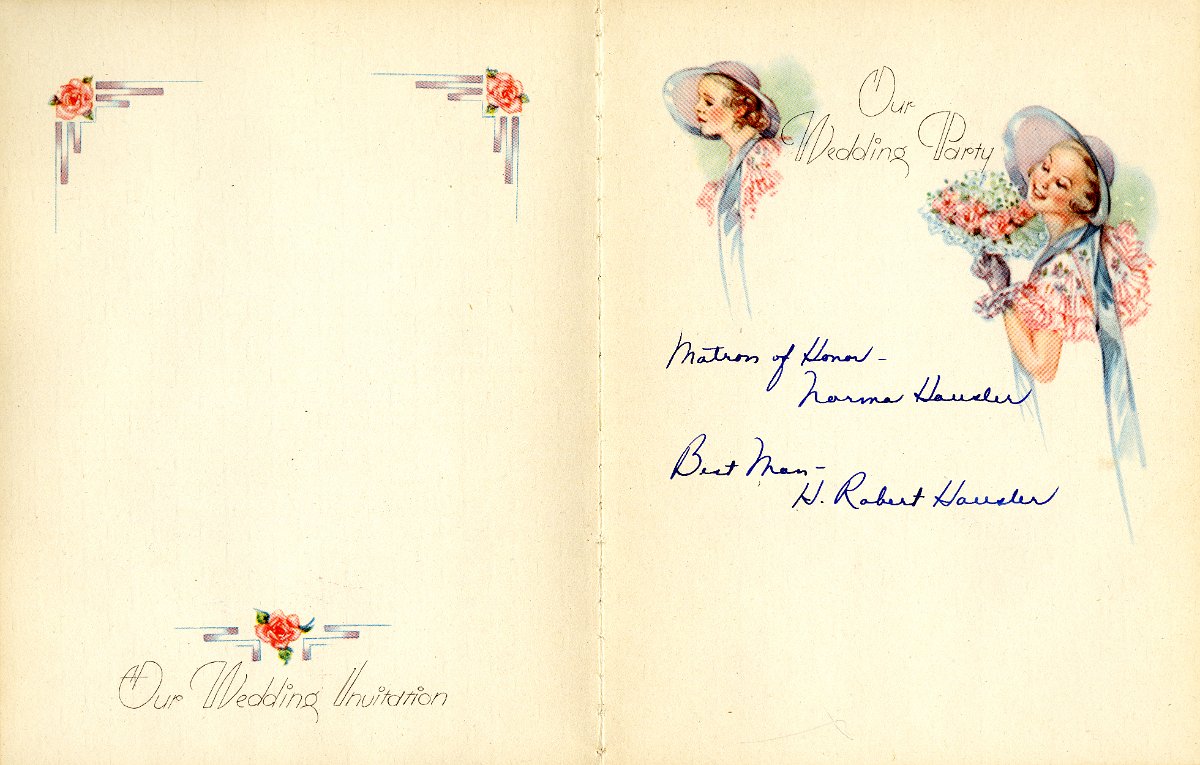 Our Wedding Invitation
Our
Wedding Party
Matron of Honor -
Norma Hausler
Best Man -
H. Robert Hausler